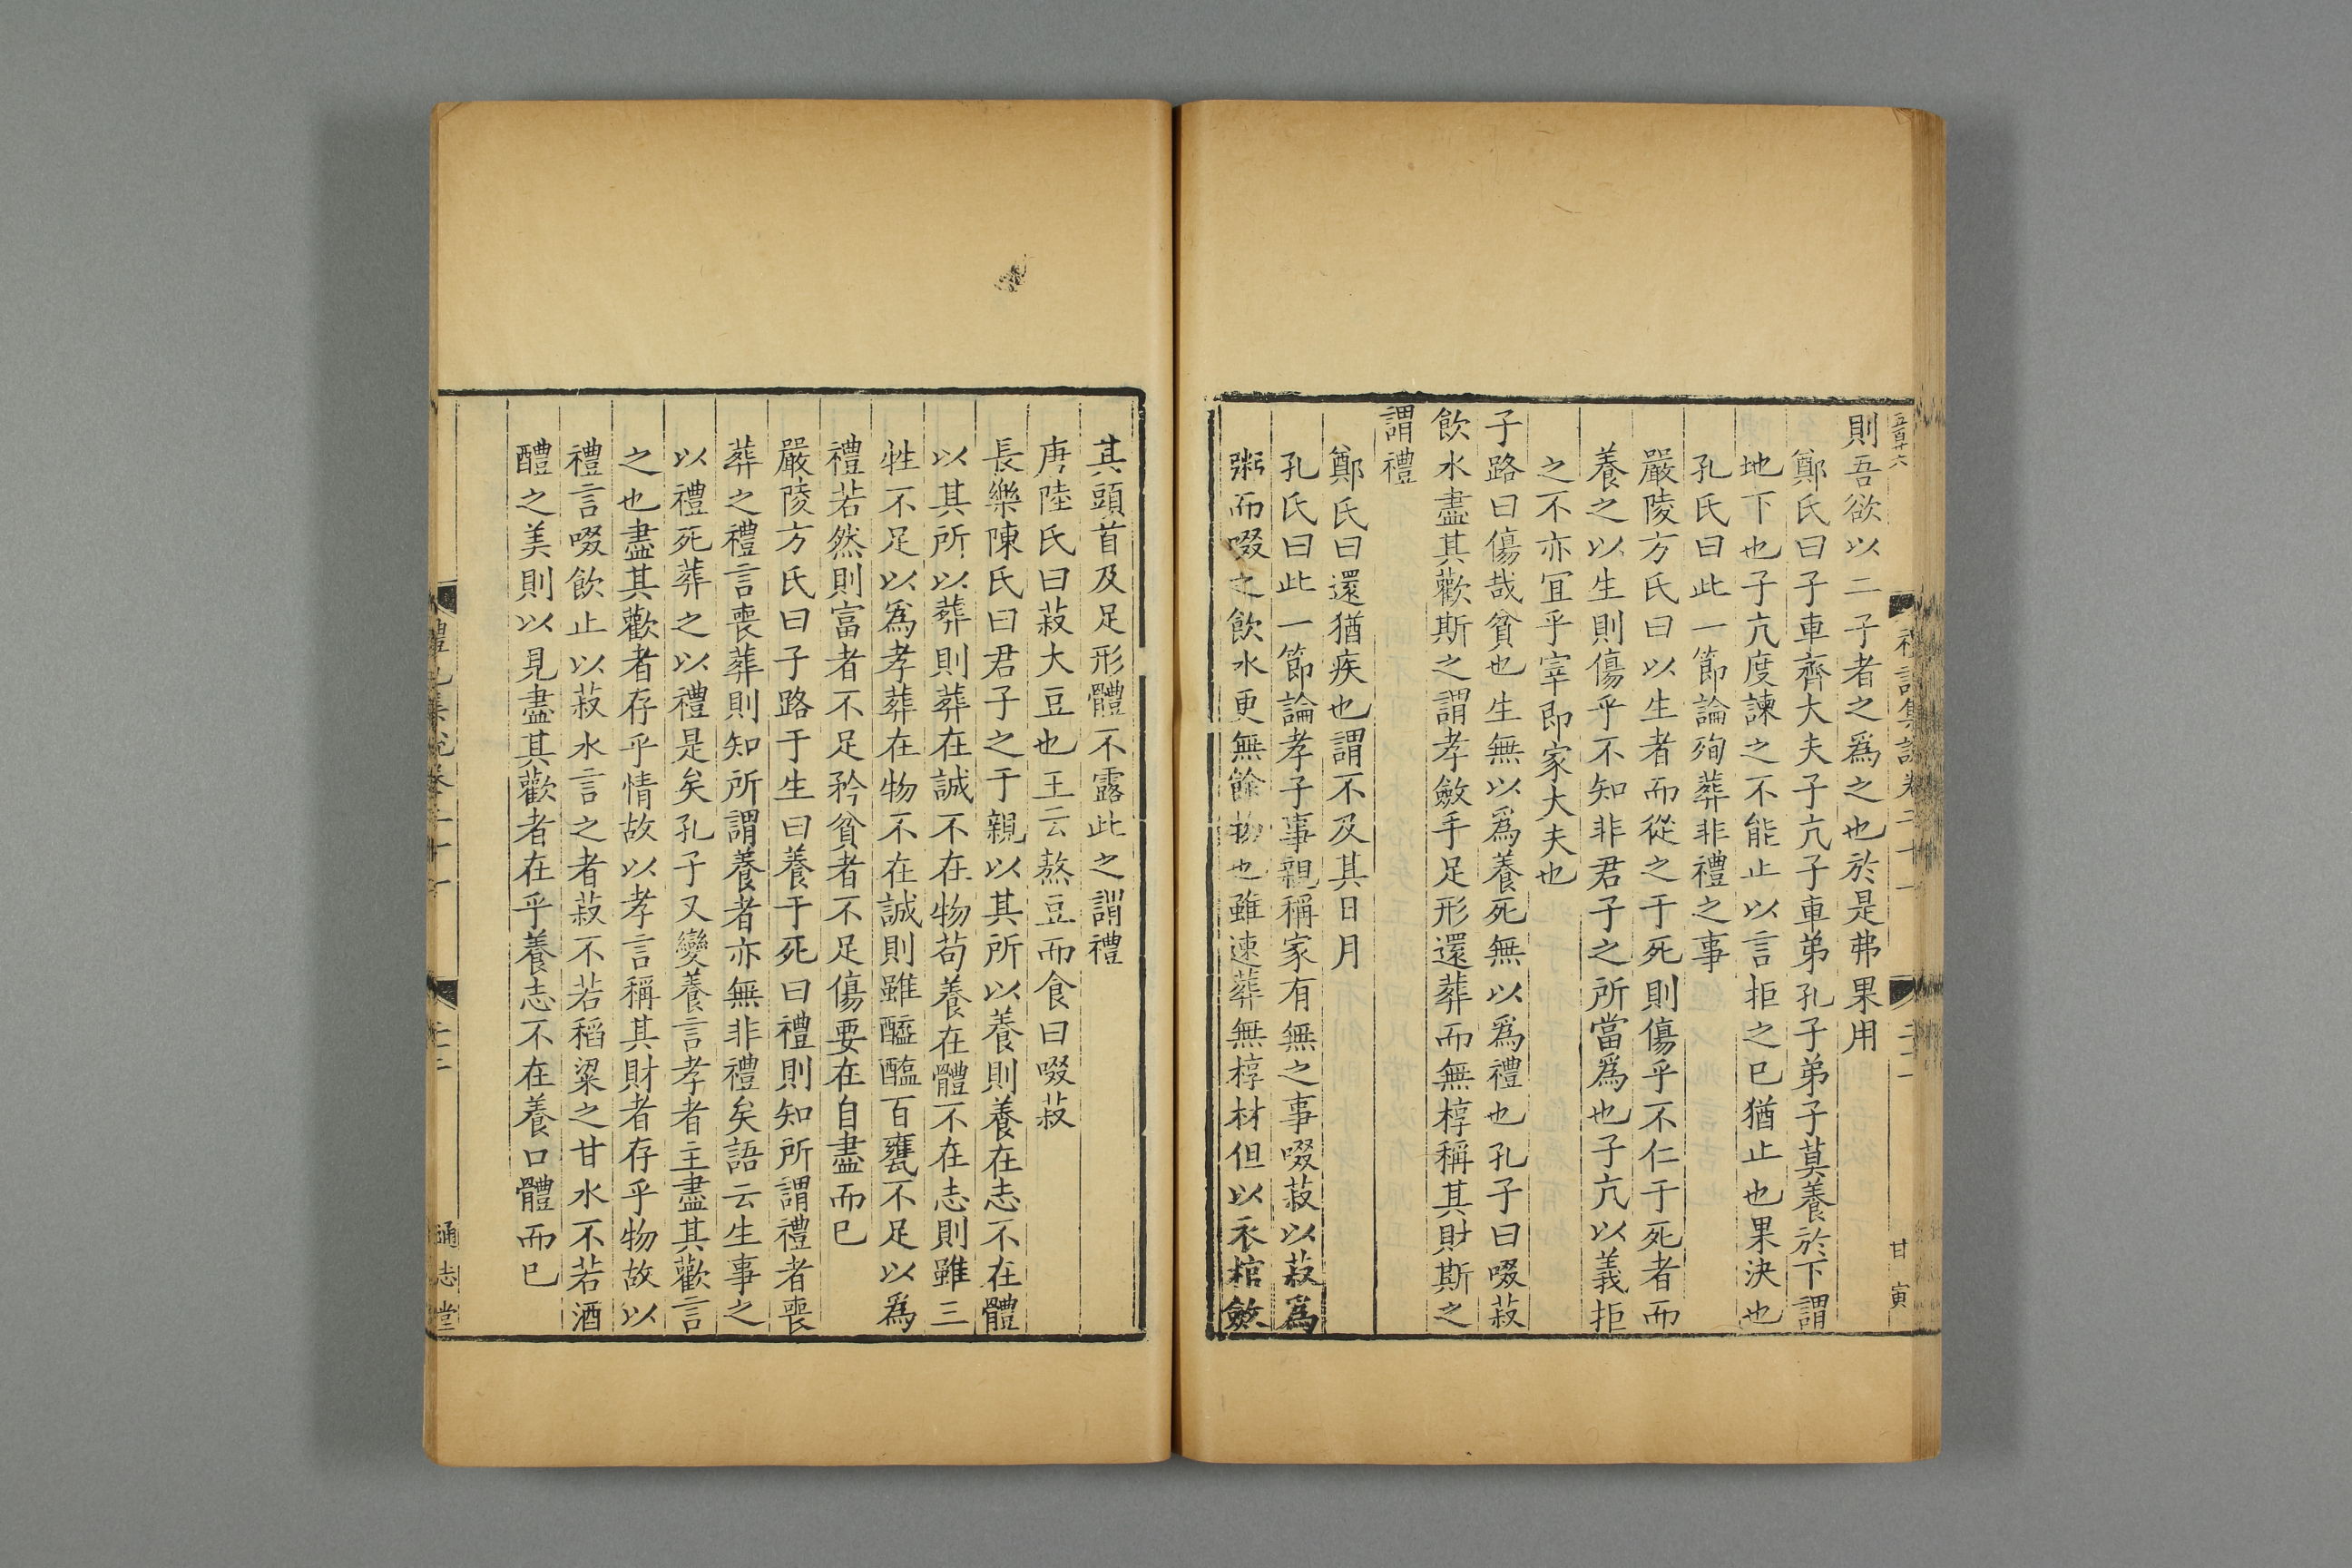 五百十六
禮記集說卷二十一
二十一
甘寅
則吾欲以二子者之爲之也於是弗果用
鄭氏曰子車齊大夫子亢子車弟孔子弟子莫養於下謂
地下也子亢度諫之不能止以言拒之已猶止也果決也
孔氏曰此一節論殉葬非禮之事
嚴陵方氏曰以生者而從之于死則傷乎不仁于死者而
養之以生則傷乎不知非君子之所當爲也子亢以義拒
之不亦宜乎宰即家大夫也
子路曰傷哉貧也生無以爲養死無以爲禮也孔子曰啜菽
飲水盡其歡斯之謂孝斂手足形還葬而無椁稱其財斯之
謂禮
鄭氏曰還猶疾也謂不及其日月
孔氏曰此一節論孝子事親稱家有無之事啜菽以菽爲
粥而啜之飲水更無餘物也雖速葬無椁材但以衣棺斂
其頭首及足形體不露此之謂禮
唐陸氏曰菽大豆也王云熬豆而食曰啜菽
長樂陳氏曰君子之于親以其所以養則養在志不在體
以其所以葬則葬在誠不在物苟養在體不在志則雖三
牲不足以爲孝葬在物不在誠則雖醯醢百甕不足以爲
禮若然則富者不足矜貧者不足傷要在自盡而已
嚴陵方氏曰子路于生曰養于死曰禮則知所謂禮者喪
葬之禮言喪葬則知所謂養者亦無非禮矣語云生事之
以禮死葬之以禮是矣孔子又變養言孝者主盡其歡言
之也盡其歡者存乎情故以孝言稱其財者存乎物故以
禮言啜飲止以菽水言之者菽不若稻粱之甘水不若酒
醴之美則以見盡其歡者在乎養志不在養口體而已
禮記集說卷二十一
通志堂